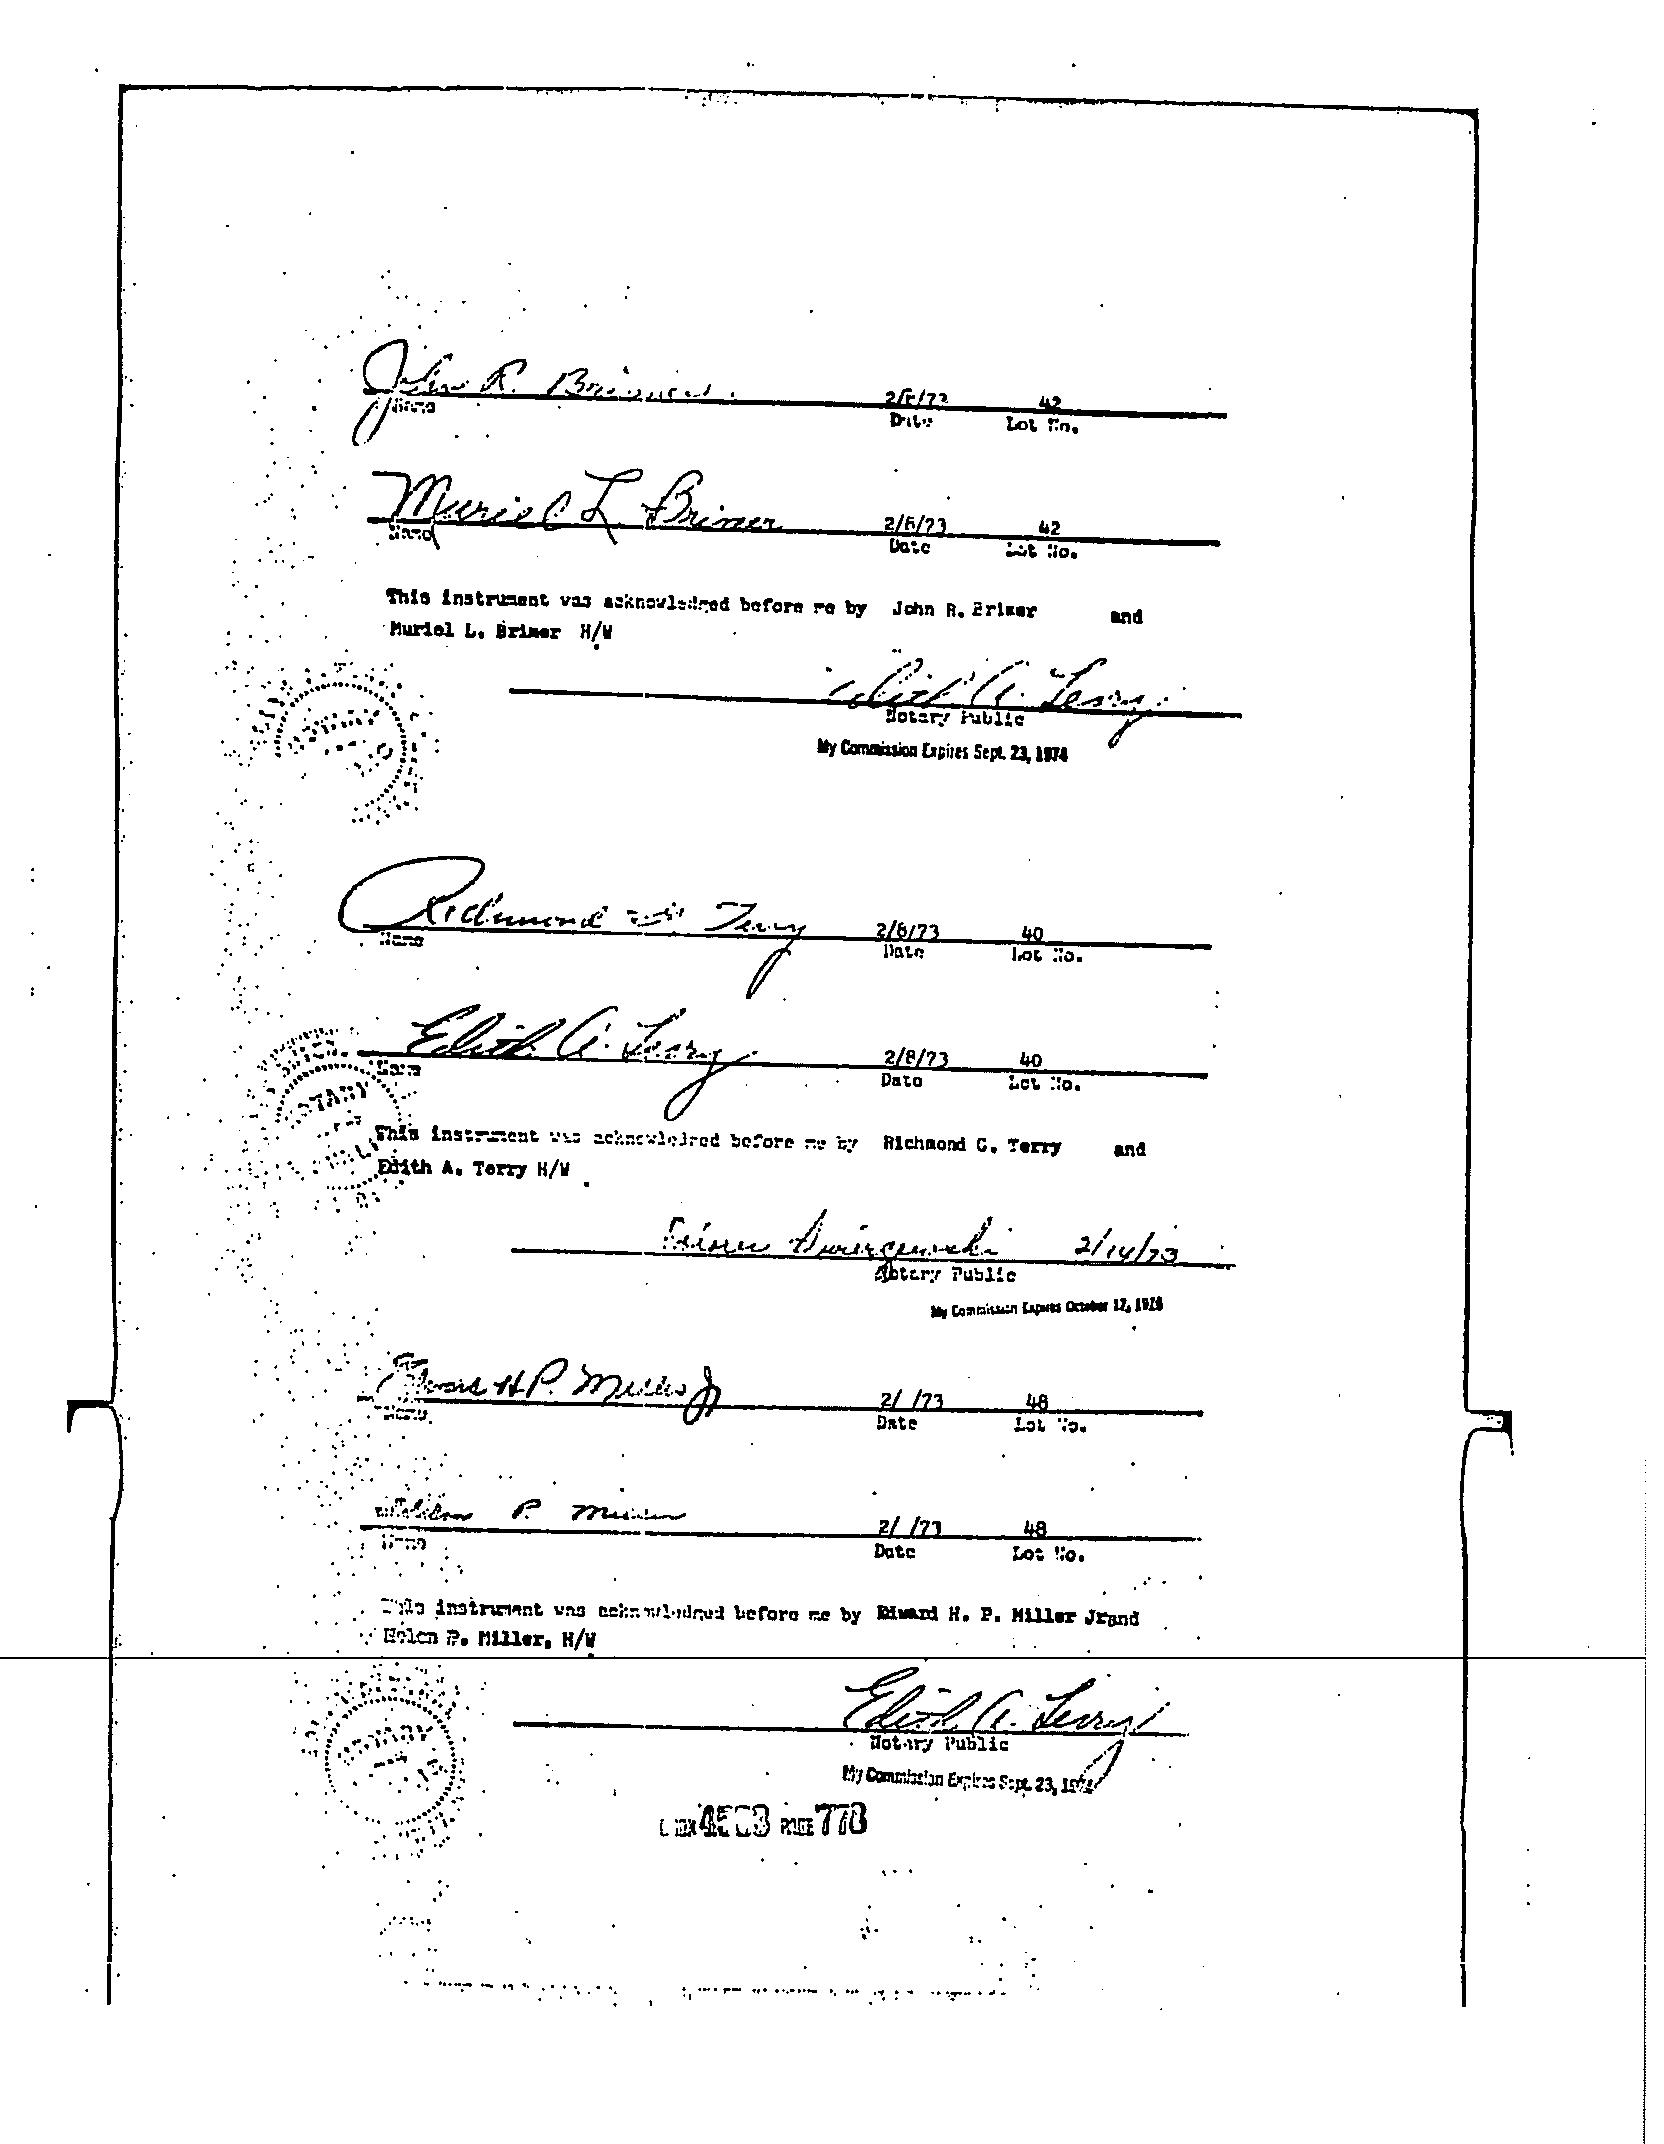 John R. Brimer 2/8/73 42
Name Date Lot No.
Muriel L. Brimer 2/8/73 42
Name Date Lot No.
This instrument was acknowledged before me by John R. Brimer and
Muriel L. Brimer H/W
Edith A. Terry
Notary Public
My Commission Expires Sept. 23, 1974
Richmond Terry 2/8/73 40
Name Date Lot No.
Edith A. Terry 2/8/73 40
Name Date Lot No.
NOTARY
This instrument was acknowledged before me by Richmond C. Terry and
Edith A. Terry H/W
2/14/73
Notary Public
My Commission Expires October 17, 1976
Edward H P. Miller Jr 2/ /73 48
Name Date Lot No.
Helen P. Miller 2/ /73 48
Name Date Lot No.
This instrument was acknowledged before me by Edward H. P. Miller Jrand
Helen P. Miller, H/W
NOTARY
Edith A. Terry
Notary Public
My Commission Expires Sept. 23, 1974
PAGE 778